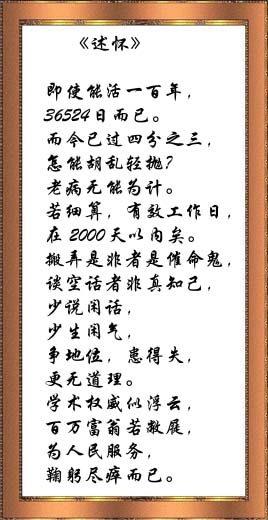 《述怀》
即使能活一百年，
36524日而已。
而今已过四分之三，
怎能胡乱轻抛？
老病无能为计。
若细算，有效工作日，
在2000天以内矣。
搬弄是非者是催命鬼，
谈空话者非真知己，
少说闲话，
少生闲气，
争地位，患得失，
更无道理。
学术权威似浮云，
百万富翁若敝屣，
为人民服务，
鞠躬尽瘁而已。